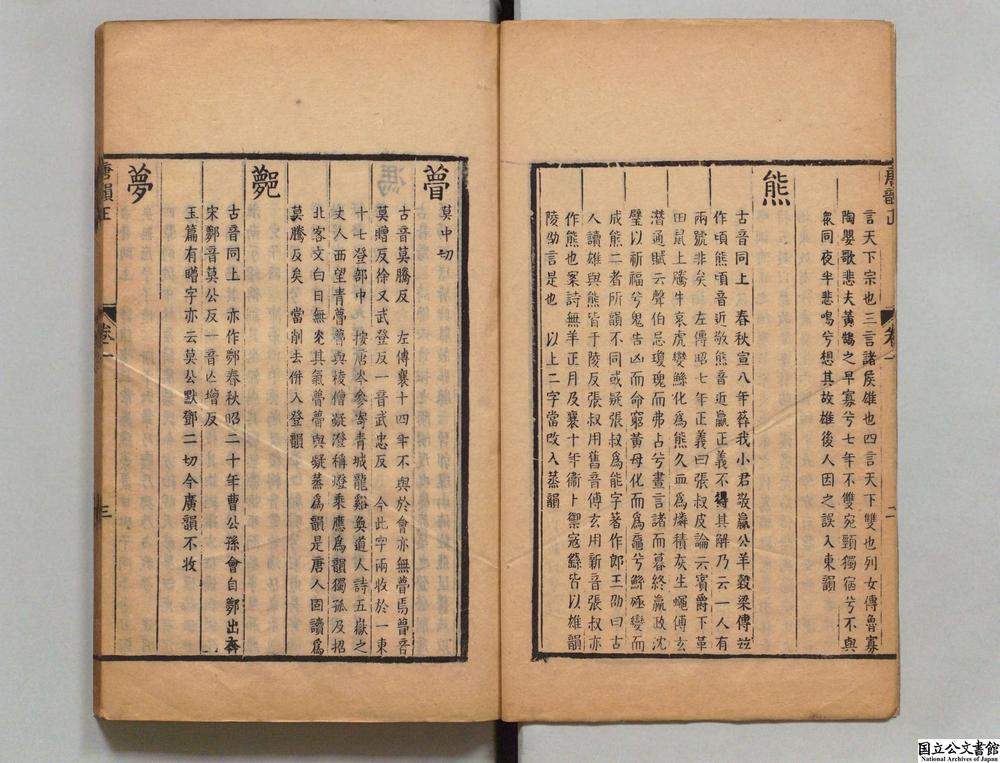 唐韻正
卷一
二
言天下宗也三言諸侯雄也四言天下雙也列女傳魯寡
陶嬰歌悲夫黃鵠之早寡兮七年不雙宛頸獨宿兮不與
衆同夜半悲鳴兮想其故雄後人因之誤入東韻
熊
古音同上 春秋宣八年葬我小君敬嬴公羊穀梁傳竝
作頃熊頃音近敬熊音近嬴正義不得其解乃云一人有
兩號非矣 左傳昭七年正義曰張叔皮論云賓爵下革
田鼠上騰牛哀虎變鯀化爲熊久血爲燐積灰生蠅傅玄
潛通賦云聲伯忌瓊瑰而弗占兮晝言諸而暮終嬴政沈
璧以祈福兮鬼告凶而命窮黃母化而爲黿兮鯀殛變而
成熊二者所韻不同或疑張叔爲能字著作郎王劭曰古
人讀雄與熊皆于陵反張叔用舊音傅玄用新音張叔亦
作熊也案詩無羊正月及襄十年衞卜禦寇繇皆以雄韻
陵劭言是也 以上二字當改入蒸韻
瞢
莫中切
古音莫騰反 左傳襄十四年不與於會亦無瞢焉瞢音
莫贈反徐又武登反一音武忠反 今此字兩收於一東
十七登部中 按唐岑參寄青城龍谿奐道人詩五嶽之
丈人西望青瞢瞢與稜僧凝澄稱燈乘應爲韻獨孤及招
北客文白日無光其氣瞢瞢與凝蒸爲韻是唐人固讀爲
莫騰反矣 當削去併入登韻
鄸
古音同上 亦作鄸春秋昭二十年曹公孫會自鄸出奔
宋鄸音莫公反一音亡增反
玉篇有䁅字亦云莫公默鄧二切今廣韻不收
夢
唐韻正
卷一
三
国立公文書館
National Archives of Japan